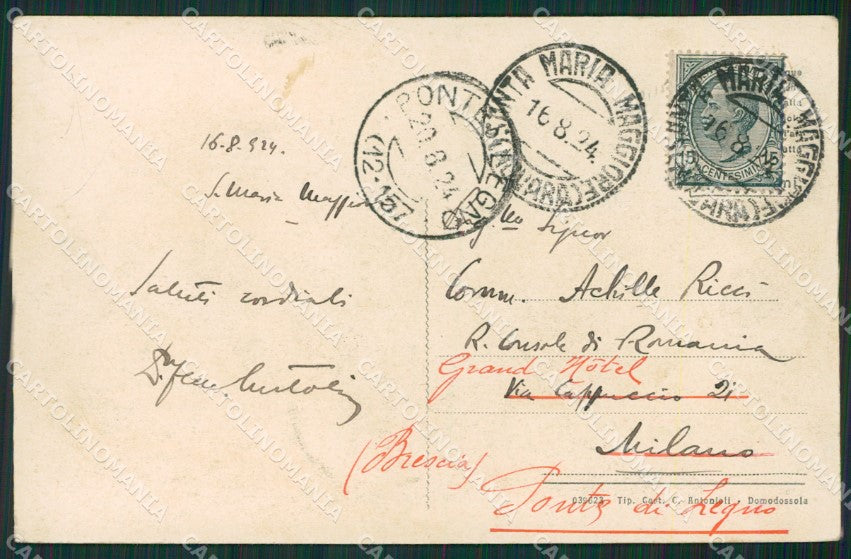 16-8-924.
S. Maria Maggiore
Saluti cordiali
PONTE DI LEGNO
20.8.24
(12-157)
SANTA MARIA MAGGIORE
16.8.24
(NOVARA)
SANTA MARIA MAGGIORE
16.8
(NOVARA)
15 15
CENTESIMI
Signor
Comm. Achille Ricci
R. Console di Romania
Grand Hôtel
Via Cappuccio 21
Milano
(Brescia)
039623 - Tip. Cart. C. Antonioli - Domodossola
Ponte di Legno
CARTOLINOMANIA